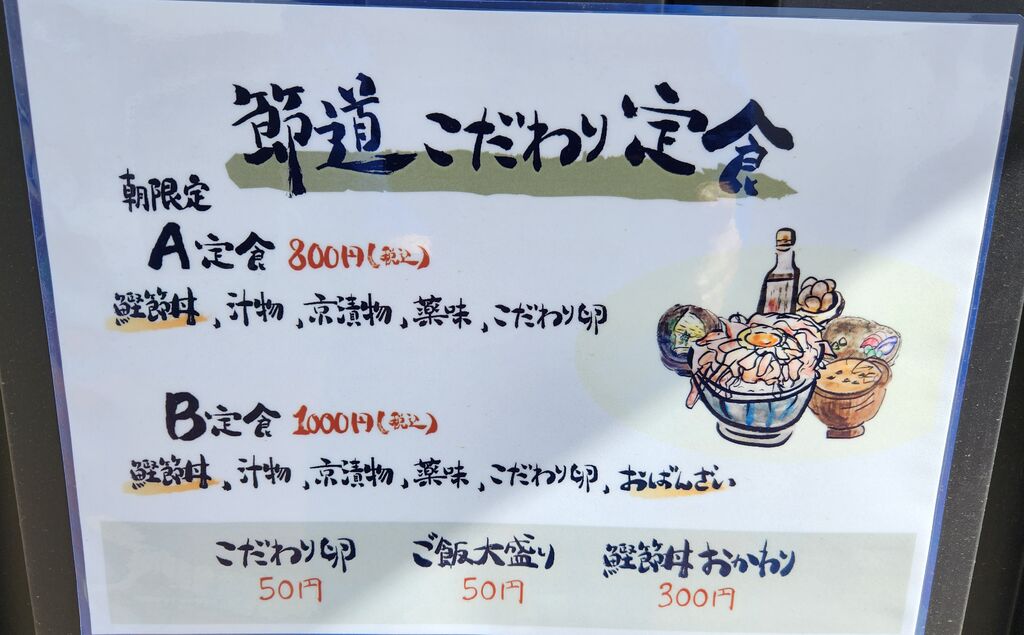 節道 こだわり定食
朝限定
A定食 800円(税込)
鰹節丼、汁物、京漬物、薬味、こだわり卵
B定食 1000円(税込)
鰹節丼、汁物、京漬物、薬味、こだわり卵、おばんざい
こだわり卵 ご飯大盛り 鰹節丼おかわり
50円 50円 300円